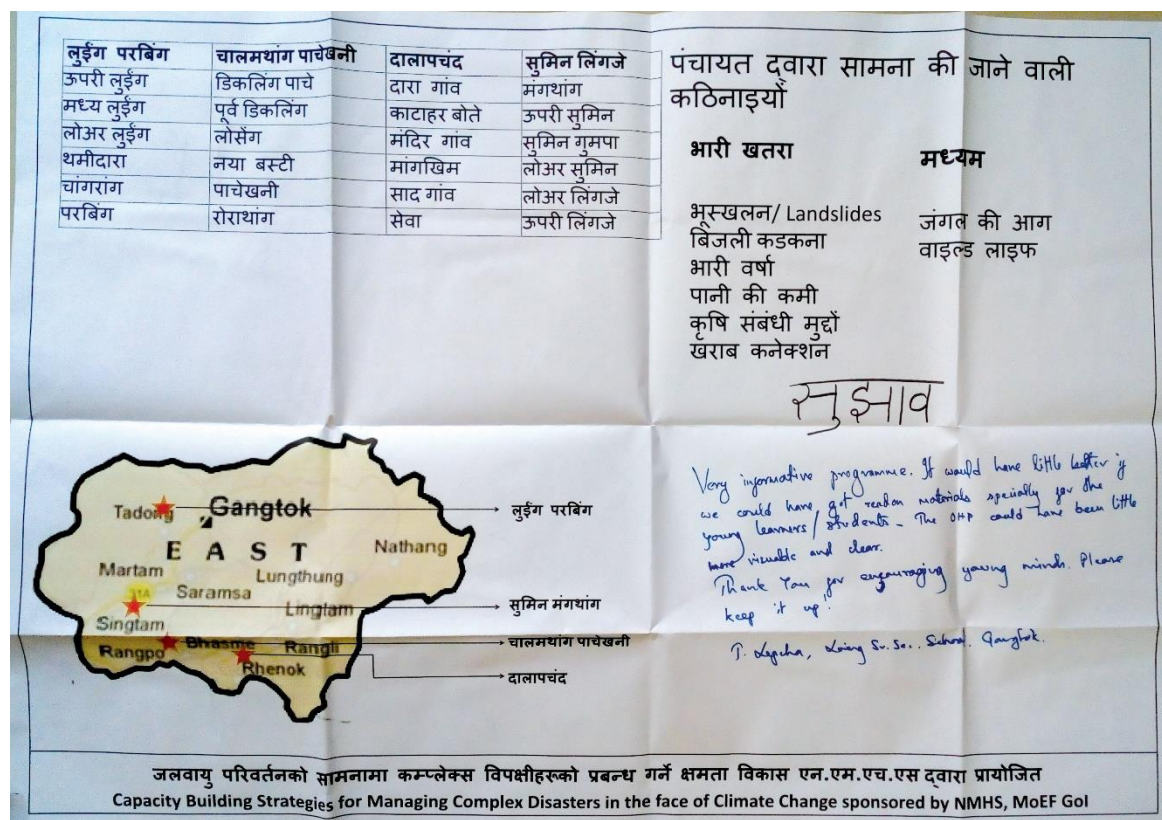 लुईंग परबिंग चालमथांग पाचेखनी दालापचंद सुमिन लिंगजे
ऊपरी लुईंग डिकलिंग पाचे दारा गांव मंगथांग
मध्य लुईंग पूर्व डिकलिंग काटाहर बोते ऊपरी सुमिन
लोअर लुईंग लोसेंग मंदिर गांव सुमिन गुमपा
थमीदारा नया बस्टी मांगखिम लोअर सुमिन
चांगरांग पाचेखनी साद गांव लोअर लिंगजे
परबिंग रोराथांग सेवा ऊपरी लिंगजे
पंचायत द्वारा सामना की जाने वाली
कठिनाइयों
भारी खतरा
भूस्खलन/ Landslides
बिजली कडकना
भारी वर्षा
पानी की कमी
कृषि संबंधी मुद्दों
खराब कनेक्शन
मध्यम
जंगल की आग
वाइल्ड लाइफ
सुझाव
Very informative programme. It would have little better if
we could have got readon materials specially for the
young learners/students. The OHP could have been little
more visuable and clear.
Thank You for encouraging young minds. Please
keep it up!
T. Lepcha, Luing Sr. Se.. School. Gangtok.
Tadong Gangtok
EAST Nathang
Martam Lungthung
31A Saramsa Lingtam
Singtam
Rangpo Bhasme Rangli
Rhenok
लुईंग परबिंग
सुमिन मंगथांग
चालमथांग पाचेखनी
दालापचंद
जलवायु परिवर्तनको सामनामा कम्प्लेक्स विपक्षीहरूको प्रबन्ध गर्ने क्षमता विकास एन.एम.एच.एस द्वारा प्रायोजित
Capacity Building Strategies for Managing Complex Disasters in the face of Climate Change sponsored by NMHS, MoEF GoI